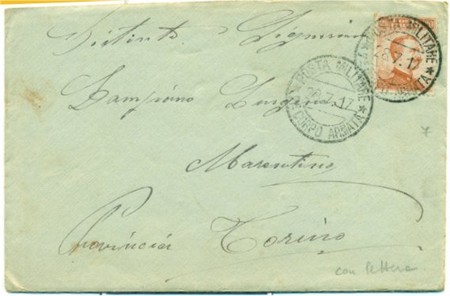 Distinta Signorina
POSTA MILITARE
26.7.17
POSTA MILITARE
26.7.17
CORPO ARMATA
Lampiano Luigina
Marentino
Provincia Torino
con lettera